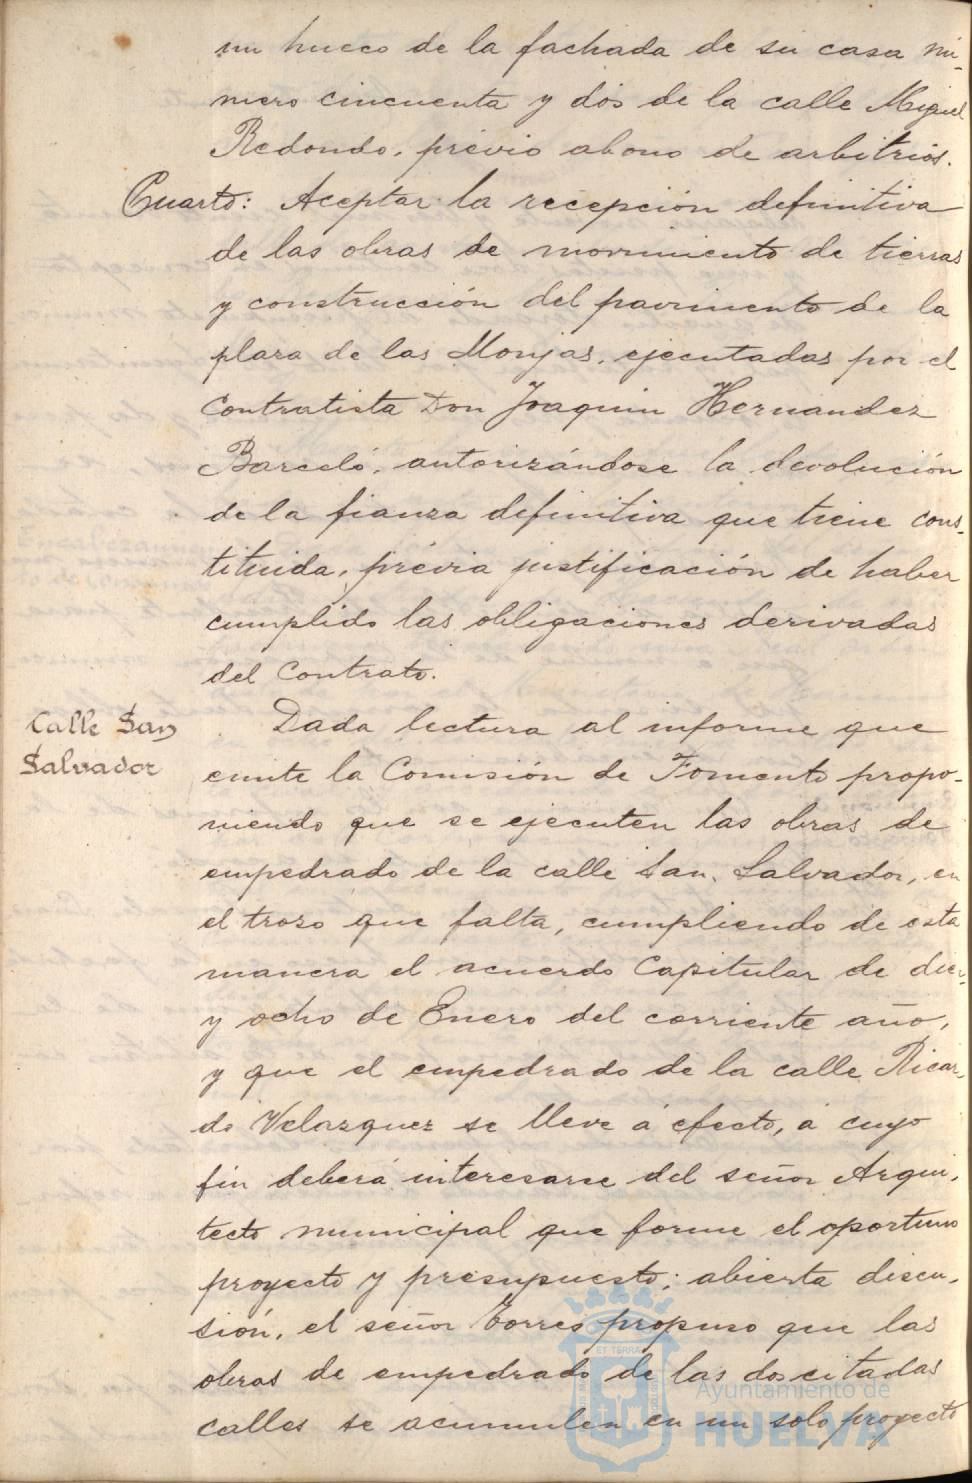 un hueco de la fachada de su casa nú-
mero cincuenta y dos de la calle Miguel
Redondo, prévio abono de arbitrios.
Cuarto: Aceptar la recepción definitiva
de las obras de movimiento de tierras
y construcción del pavimento de la
plaza de las Monjas, ejecutadas por el
Contratista Don Joaquin Hernandez
Barceló, autorizándose la devolución
de la fianza definitiva que tiene cons-
tituida, prévia justificación de haber
cumplido las obligaciones derivadas
del Contrato.
Calle San
Salvador
Dada lectura al informe que
emite la Comisión de Fomento propo-
niendo que se ejecuten las obras de
empedrado de la calle San Salvador, en
el trozo que falta, cumpliendo de esta
manera el acuerdo Capitular de diez
y ocho de Enero del corriente año,
y que el empedrado de la calle Ricar-
do Velazquez se lleve á efecto, á cuyo
fin deberá interesarse del señor Arqui-
tecto municipal que forme el oportuno
proyecto y presupuesto; abierta discu-
sión, el señor Torres propuso que las
obras de empedrado de las dos citadas
calles se acumulen en un solo proyecto
ET TERRA
Ayuntamiento de
HUELVA